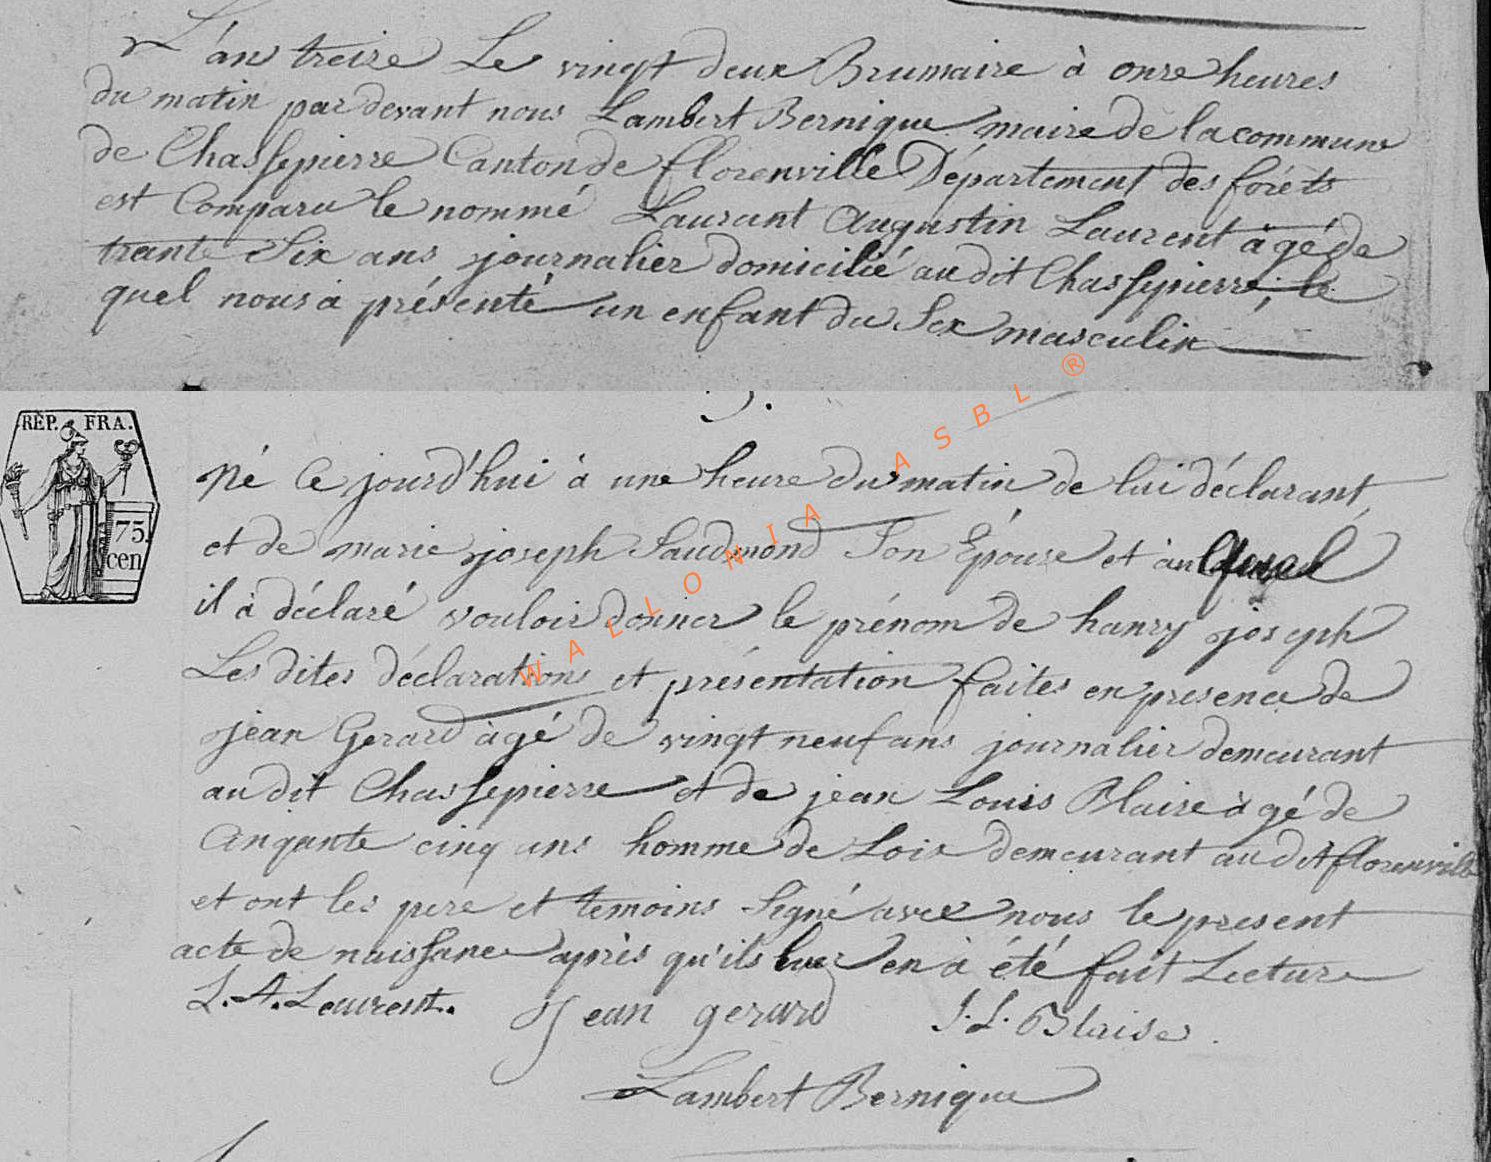 L'an treize Le vingt deux Brumaire à onze heures
du matin par devant nous Lambert Bernique maire de la commune
de Chassepierre Canton de florenville Département des foréts
est Comparu le nommé Laurant Augustin Laurent agé de
trante Six ans journalier domicilié au dit Chassepierre, le
quel nous à présenté un enfant du Sex masculin
RÉP. FRA.
75.
cen
né Ce jourd'hui à une heure du matin de lui déclarant
et de marie joseph Saudmond Son Épouse et
il à déclaré vouloir donner le prénom de hanry joseph
Les dites déclarations et présentation faites en presence de
jean Gerard agé de vingt neuf ans journalier demeurant
au dit Chassepierre et de jean Louis Blaise agé de
Cinqante cinq ans homme de Loix demeurant au dit florenville
et ont les pere et temoins Signé avec nous le present
acte de naissance après qu'ils luer en à été fait Lecture
L. A. Laurent. Jean gerard J. L. Blaise
Lambert Bernique
WALLONIA ASBL ®